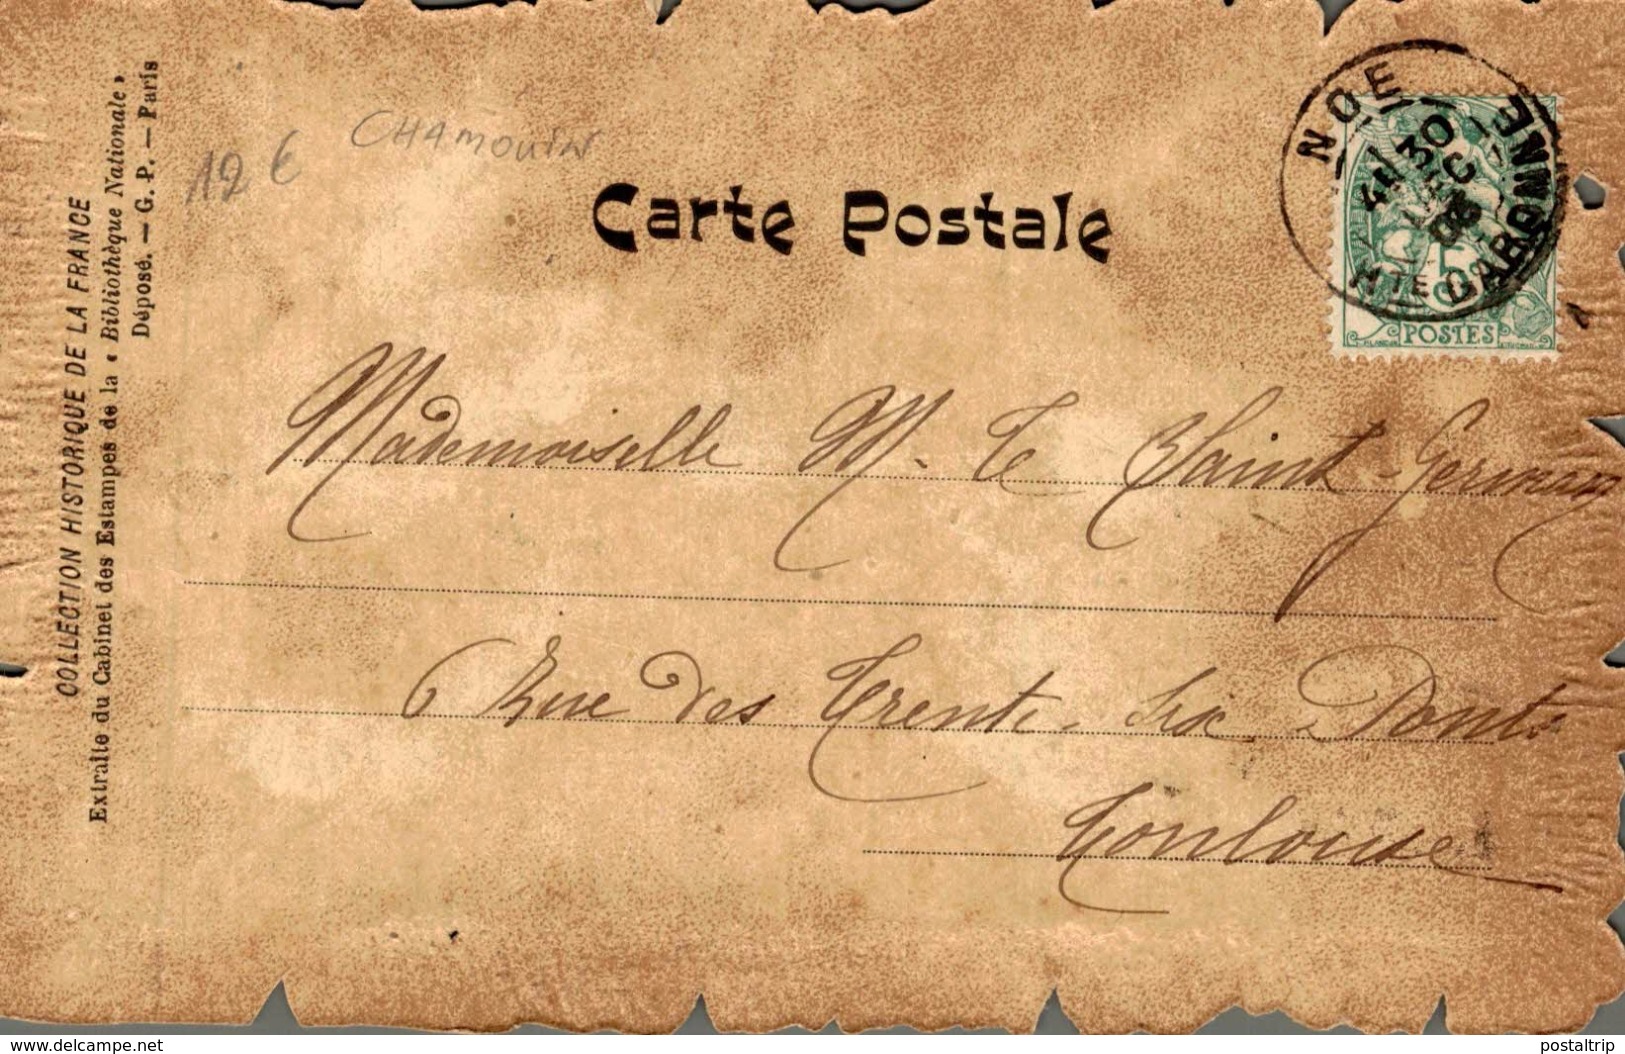 COLLECTION HISTORIQUE DE LA FRANCE
Extraite du Cabinet des Estampes de la « Bibliothèque Nationale »
Déposé. — G. P. — Paris
12 €
CHAMOUIN
Carte Postale
NOE
30
DEC
HTE GARONNE
5
POSTES
Mademoiselle M. Te Saint-Germain
6 Rue des Trente-Six Ponts
Toulouse
www.delcampe.net
postaltrip